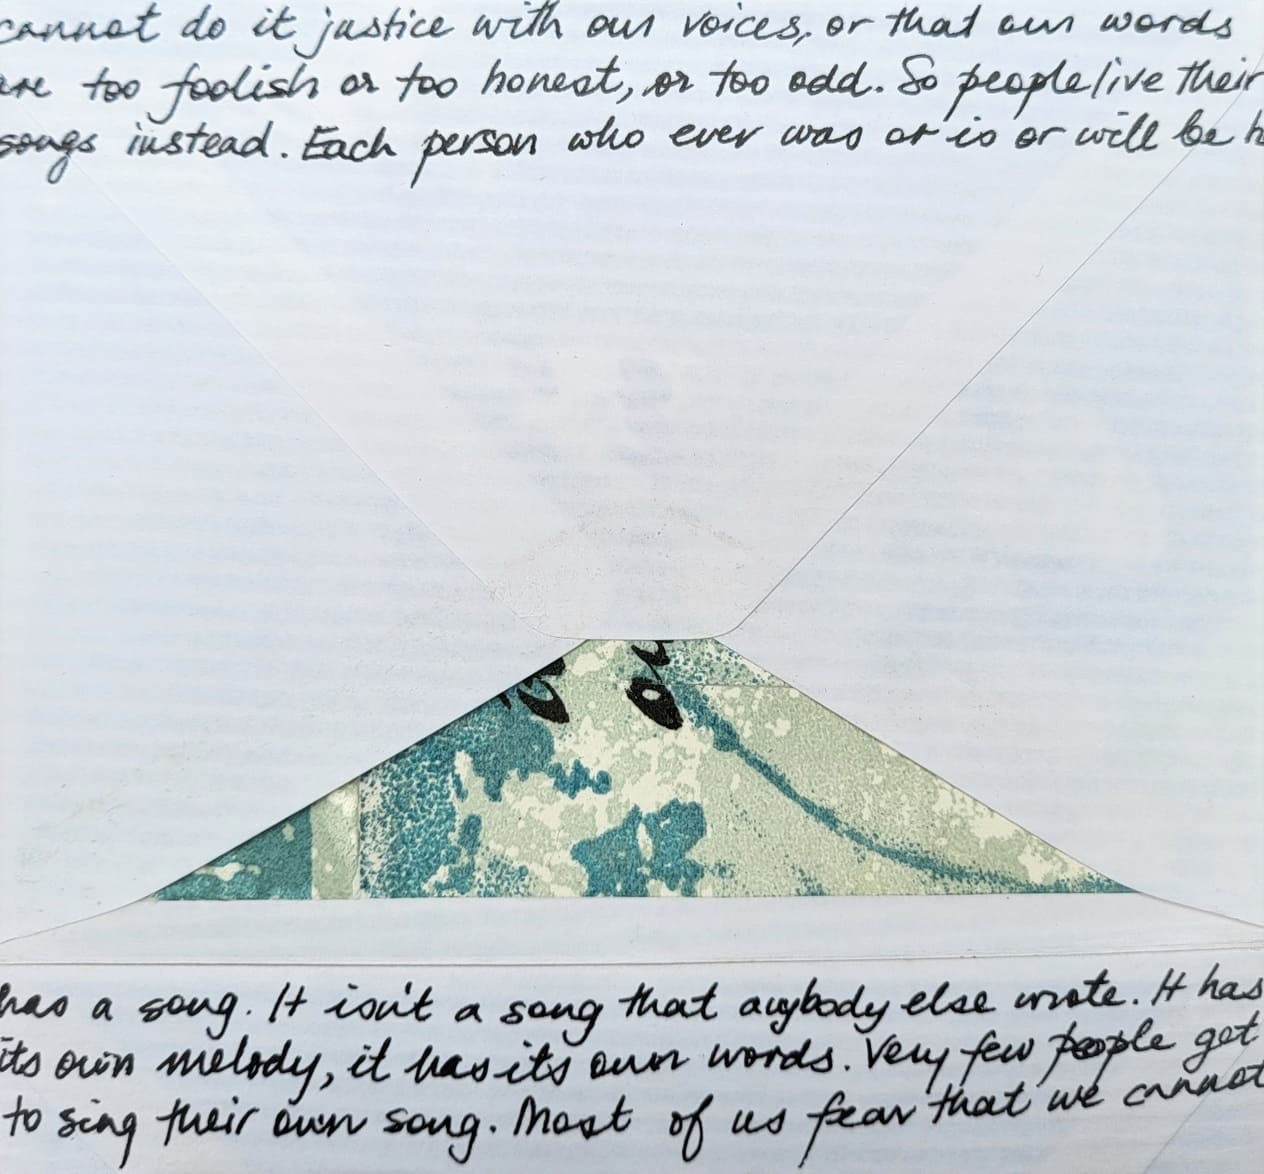 cannot do it justice with our voices, or that our words
are too foolish or too honest, or too odd. So people live their
songs instead. Each person who ever was or is or will be h
ou
has a song. It isn't a song that anybody else wrote. It has
its own melody, it has its own words. Very few people get
to sing their own song. Most of us fear that we cannot